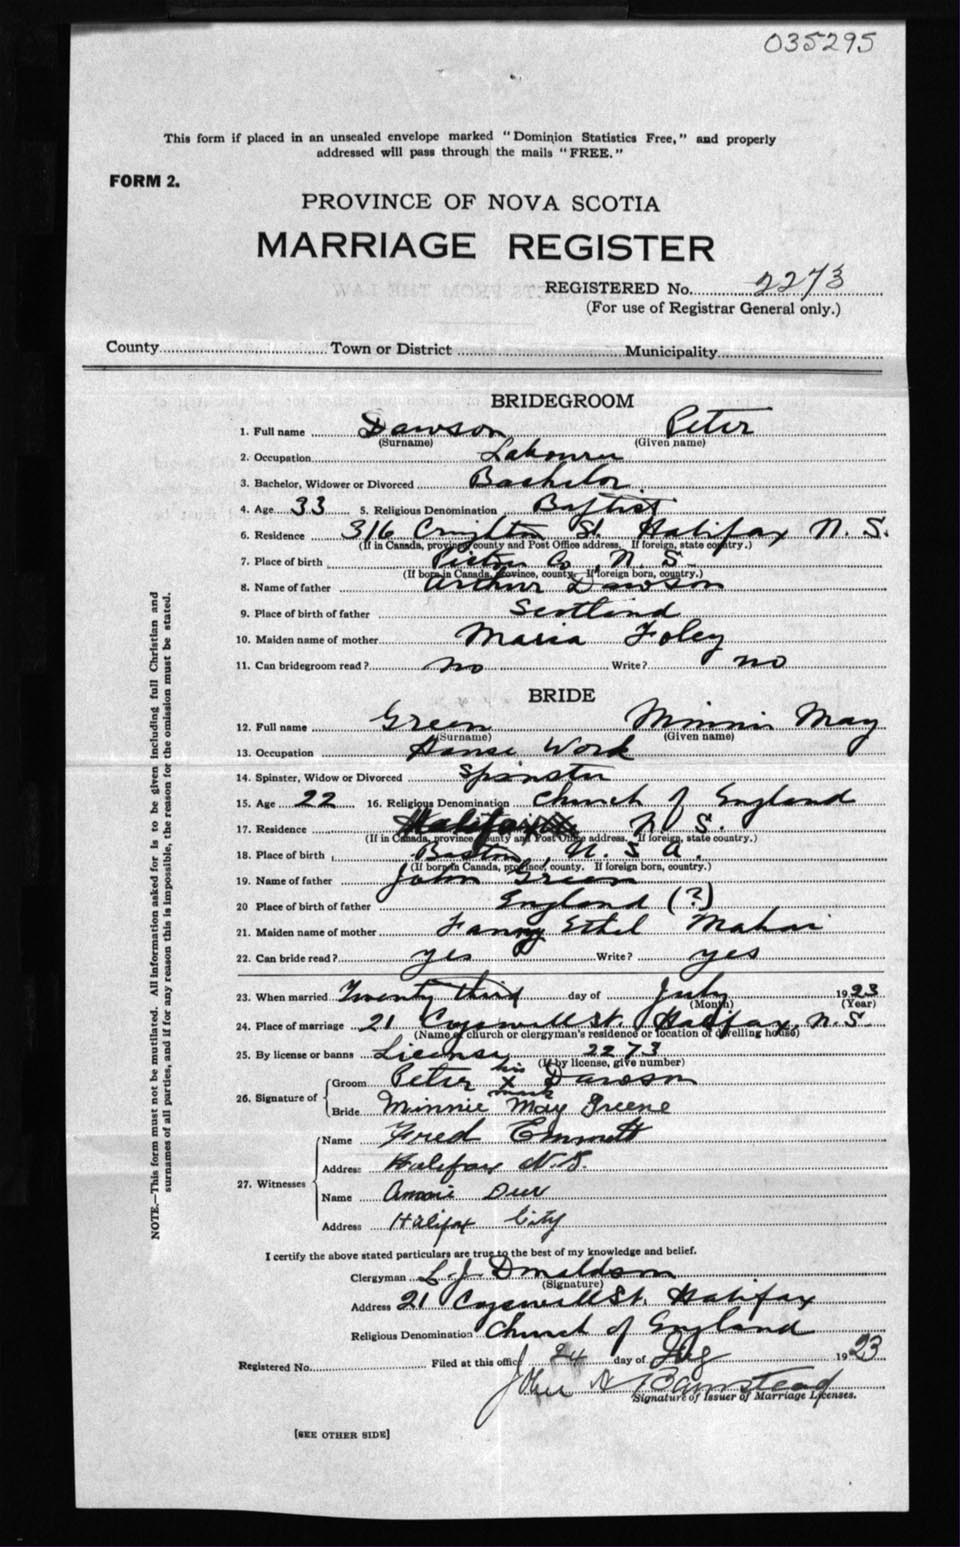 035295
This form if placed in an unsealed envelope marked "Dominion Statistics Free," and properly
addressed will pass through the mails "FREE."
FORM 2.
PROVINCE OF NOVA SCOTIA
MARRIAGE REGISTER
REGISTERED No. 2273
(For use of Registrar General only.)
County Town or District Municipality
BRIDEGROOM
1. Full name Dawson Peter
(Surname) (Given name)
2. Occupation Labourer
3. Bachelor, Widower or Divorced Bachelor
4. Age 33 5. Religious Denomination Baptist
6. Residence 316 Creighton St. Halifax N. S.
(If in Canada, province, county and Post Office address. If foreign, state country.)
7. Place of birth Pictou Co, N. S.
(If born in Canada, province, county. If foreign born, country.)
8. Name of father Arthur Dawson
9. Place of birth of father Scotland
10. Maiden name of mother Maria Foley
11. Can bridegroom read? no Write? no
BRIDE
12. Full name Green Minnie May
(Surname) (Given name)
13. Occupation House Work
14. Spinster, Widow or Divorced Spinster
15. Age 22 16. Religious Denomination Church of England
17. Residence Halifax N. S.
(If in Canada, province, county and Post Office address. If foreign, state country.)
18. Place of birth Boston, U. S. A.
(If born in Canada, province, county. If foreign born, country.)
19. Name of father John Green
20 Place of birth of father England (?)
21. Maiden name of mother Fanny Ethel
22. Can bride read? yes Write? yes
23. When married Twenty third day of July 1923
(Month) (Year)
24. Place of marriage 21 Cogswell St. Halifax, N. S.
(Name of church or clergyman's residence or location of dwelling house)
25. By license or banns License 2273
(If by license, give number)
26. Signature of Groom Peter his x mark Dawson
Bride Minnie May Greene
27. Witnesses Name Fred Emmett
Address Halifax N.S.
Name Annie
Address Halifax City
I certify the above stated particulars are true to the best of my knowledge and belief.
Clergyman L. J. Donaldson
(Signature)
Address 21 Cogswell St. Halifax
Religious Denomination Church of England
Registered No. Filed at this office 24 day of 1923
John A Barnstead
Signature of Issuer of Marriage Licenses.
[SEE OTHER SIDE]
NOTE.—This form must not be mutilated. All information asked for is to be given including full Christian and
surnames of all parties, and if for any reason this is impossible, the reason for the omission must be stated.